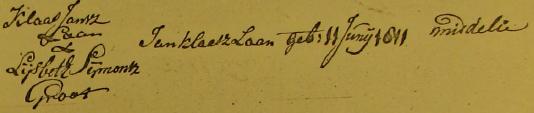 Klaas Jansz
Laan
&
Lijsbeth Sijmontz
Groot
Jan klaesz Laan geb: 11 Junij 1811 middelie